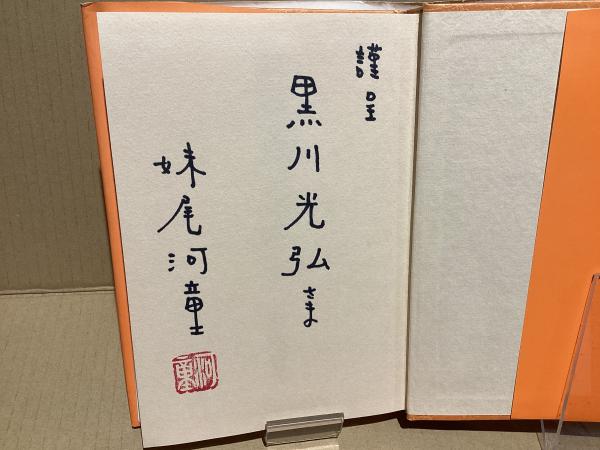 謹呈
黒川光弘さま
妹尾河童
河童